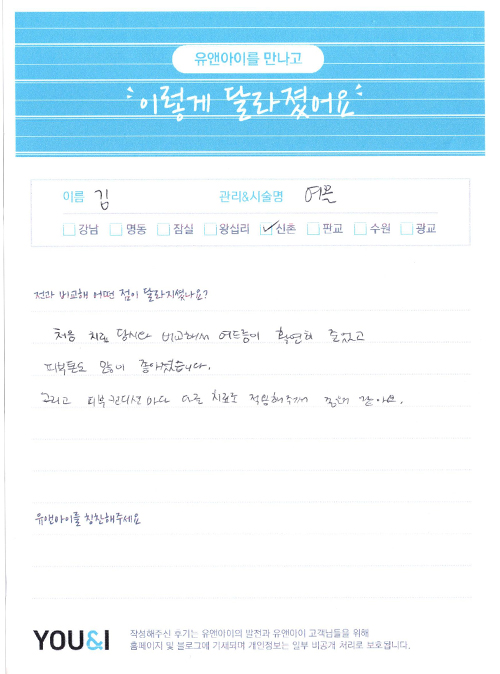 유앤아이를 만나고
이렇게 달라졌어요
이름 김 관리&시술명 여믈
강남 명동 잠실 왕십리 신촌 판교 수원 광교
전과 비교해 어떤 점이 달라지셨나요?
처음 치료 당시와 비교해서 여드름이 확연히 줄었고
피부톤도 많이 좋아졌습니다.
그리고 피부컨디션 마다 다른 치료로 적용해주셔 같아요.
유앤아이를 칭찬해주세요
YOU&I
작성해주신 후기는 유앤아이의 발전과 유앤아이 고객님들을 위해
홈페이지 및 블로그에 기재되며 개인정보는 일부 비공개 처리로 보호됩니다.